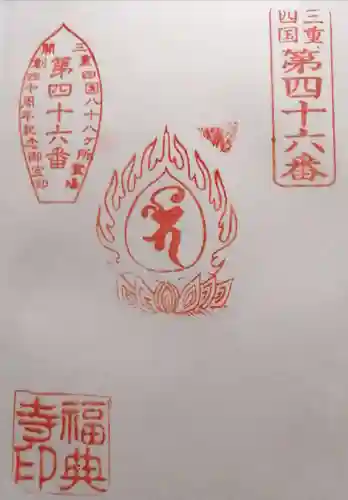 三重
四国
第四十六番
三重四国八十八ヶ所霊場
第四十六番
開創四十周年記念御宝印
福典
寺印